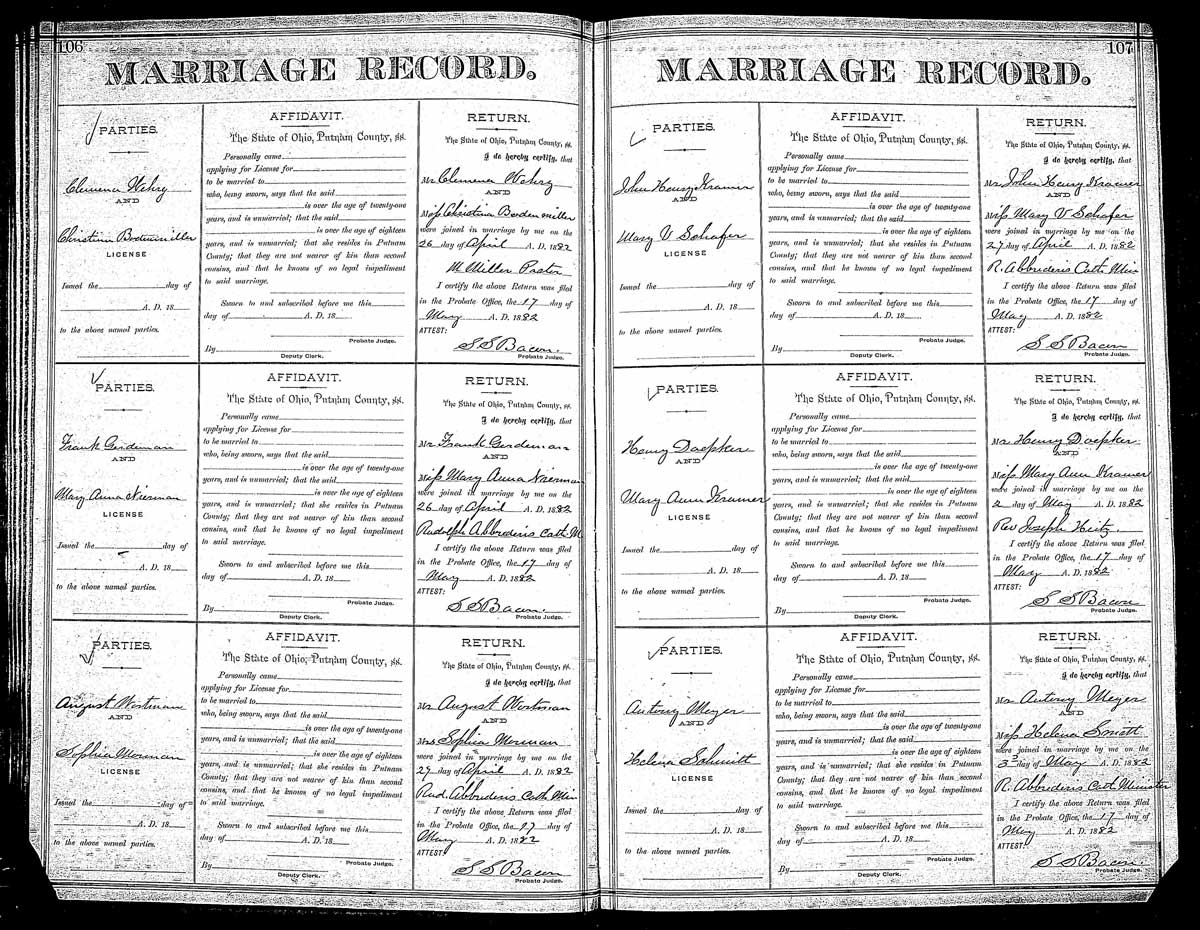 106
MARRIAGE RECORD.
PARTIES.
Clemena Wehry
AND
Christina Bodenmiller
LICENSE
Issued the day of
A. D. 18
to the above named parties.
AFFIDAVIT.
The State of Ohio, Putnam County, ss.
Personally came
applying for License for
to be married to
who, being sworn, says that the said
is over the age of twenty-one
years, and is unmarried; that the said
is over the age of eighteen
years, and is unmarried; that she resides in Putnam
County; that they are not nearer of kin than second
cousins, and that he knows of no legal impediment
to said marriage.
Sworn to and subscribed before me this
day of A. D. 18
Probate Judge.
By
Deputy Clerk.
RETURN.
The State of Ohio, Putnam County, ss.
I do hereby certify, that
Mr Clemena Wehry
AND
Miss Christina Bodenmiller
were joined in marriage by me on the
26 day of April A. D. 1882
M Miller Pastor
I certify the above Return was filed
in the Probate Office, the 17 day of
May A. D. 1882
ATTEST:
S S Bacon
Probate Judge.
PARTIES.
Frank Gerdeman
AND
Mary Anna Nierman
LICENSE
Issued the day of
A. D. 18
to the above named parties.
AFFIDAVIT.
The State of Ohio, Putnam County, ss.
Personally came
applying for License for
to be married to
who, being sworn, says that the said
is over the age of twenty-one
years, and is unmarried; that the said
is over the age of eighteen
years, and is unmarried; that she resides in Putnam
County; that they are not nearer of kin than second
cousins, and that he knows of no legal impediment
to said marriage.
Sworn to and subscribed before me this
day of A. D. 18
Probate Judge.
By
Deputy Clerk.
RETURN.
The State of Ohio, Putnam County, ss.
I do hereby certify, that
Mr Frank Gerdeman
AND
Miss Mary Anna Nierman
were joined in marriage by me on the
26 day of April A. D. 1882
Rudolph Abbrederis Cath. M
I certify the above Return was filed
in the Probate Office, the 17 day of
May A. D. 1882
ATTEST:
S S Bacon.
Probate Judge.
PARTIES.
August Wortman
AND
Sophia Morman
LICENSE
Issued the day of
A. D. 18
to the above named parties.
AFFIDAVIT.
The State of Ohio, Putnam County, ss.
Personally came
applying for License for
to be married to
who, being sworn, says that the said
is over the age of twenty-one
years, and is unmarried; that the said
is over the age of eighteen
years, and is unmarried; that she resides in Putnam
County; that they are not nearer of kin than second
cousins, and that he knows of no legal impediment
to said marriage.
Sworn to and subscribed before me this
day of A. D. 18
Probate Judge.
By
Deputy Clerk.
RETURN.
The State of Ohio, Putnam County, ss.
I do hereby certify, that
Mr August Wortman
AND
Mrs Sophia Morman
were joined in marriage by me on the
27 day of April A. D. 1882
Rud. Abbrederis Cath. Min
I certify the above Return was filed
in the Probate Office, the 17 day of
May A. D. 1882
ATTEST
S S Bacon
Probate Judge.
107
MARRIAGE RECORD.
PARTIES.
John Henry Kramer
AND
Mary V Schafer
LICENSE
Issued the day of
A. D. 18
to the above named parties.
AFFIDAVIT.
The State of Ohio, Putnam County, ss.
Personally came
applying for License for
to be married to
who, being sworn, says that the said
is over the age of twenty-one
years, and is unmarried; that the said
is over the age of eighteen
years, and is unmarried; that she resides in Putnam
County; that they are not nearer of kin than second
cousins, and that he knows of no legal impediment
to said marriage.
Sworn to and subscribed before me this
day of A. D. 18
Probate Judge.
By
Deputy Clerk.
RETURN.
The State of Ohio, Putnam County, ss.
I do hereby certify, that
Mr John Henry Kramer
AND
Miss Mary V Schafer
were joined in marriage by me on the
27 day of April A. D. 1882
R. Abbrederis Cath Min
I certify the above Return was filed
in the Probate Office, the 17 day of
May A. D. 1882
ATTEST:
S S Bacon
Probate Judge.
PARTIES.
Henry Doepker
AND
Mary Ann Kramer
LICENSE
Issued the day of
A. D. 18
to the above named parties.
AFFIDAVIT.
The State of Ohio, Putnam County, ss.
Personally came
applying for License for
to be married to
who, being sworn, says that the said
is over the age of twenty-one
years, and is unmarried; that the said
is over the age of eighteen
years, and is unmarried; that she resides in Putnam
County; that they are not nearer of kin than second
cousins, and that he knows of no legal impediment
to said marriage.
Sworn to and subscribed before me this
day of A. D. 18
Probate Judge.
By
Deputy Clerk.
RETURN.
The State of Ohio, Putnam County, ss.
I do hereby certify, that
Mr Henry Doepker
AND
Miss Mary Ann Kramer
were joined in marriage by me on the
2 day of May A. D. 1882
Rev Joseph Heitz.
I certify the above Return was filed
in the Probate Office, the 17 day of
May A. D. 1882
ATTEST:
S S Bacon
Probate Judge.
PARTIES.
Antony Meyer
AND
Helena Schmitt
LICENSE
Issued the day of
A. D. 18
to the above named parties.
AFFIDAVIT.
The State of Ohio, Putnam County, ss.
Personally came
applying for License for
to be married to
who, being sworn, says that the said
is over the age of twenty-one
years, and is unmarried; that the said
is over the age of eighteen
years, and is unmarried; that she resides in Putnam
County; that they are not nearer of kin than second
cousins, and that he knows of no legal impediment
to said marriage.
Sworn to and subscribed before me this
day of A. D. 18
Probate Judge.
By
Deputy Clerk.
RETURN.
The State of Ohio, Putnam County, ss.
I do hereby certify, that
Mr Antony Meyer
AND
Miss Helena Smitt
were joined in marriage by me on the
3 day of May A. D. 1882
R. Abbrederis Cath Minister
I certify the above Return was filed
in the Probate Office, the 17 day of
May A. D. 1882
ATTEST:
S S Bacon.
Probate Judge.